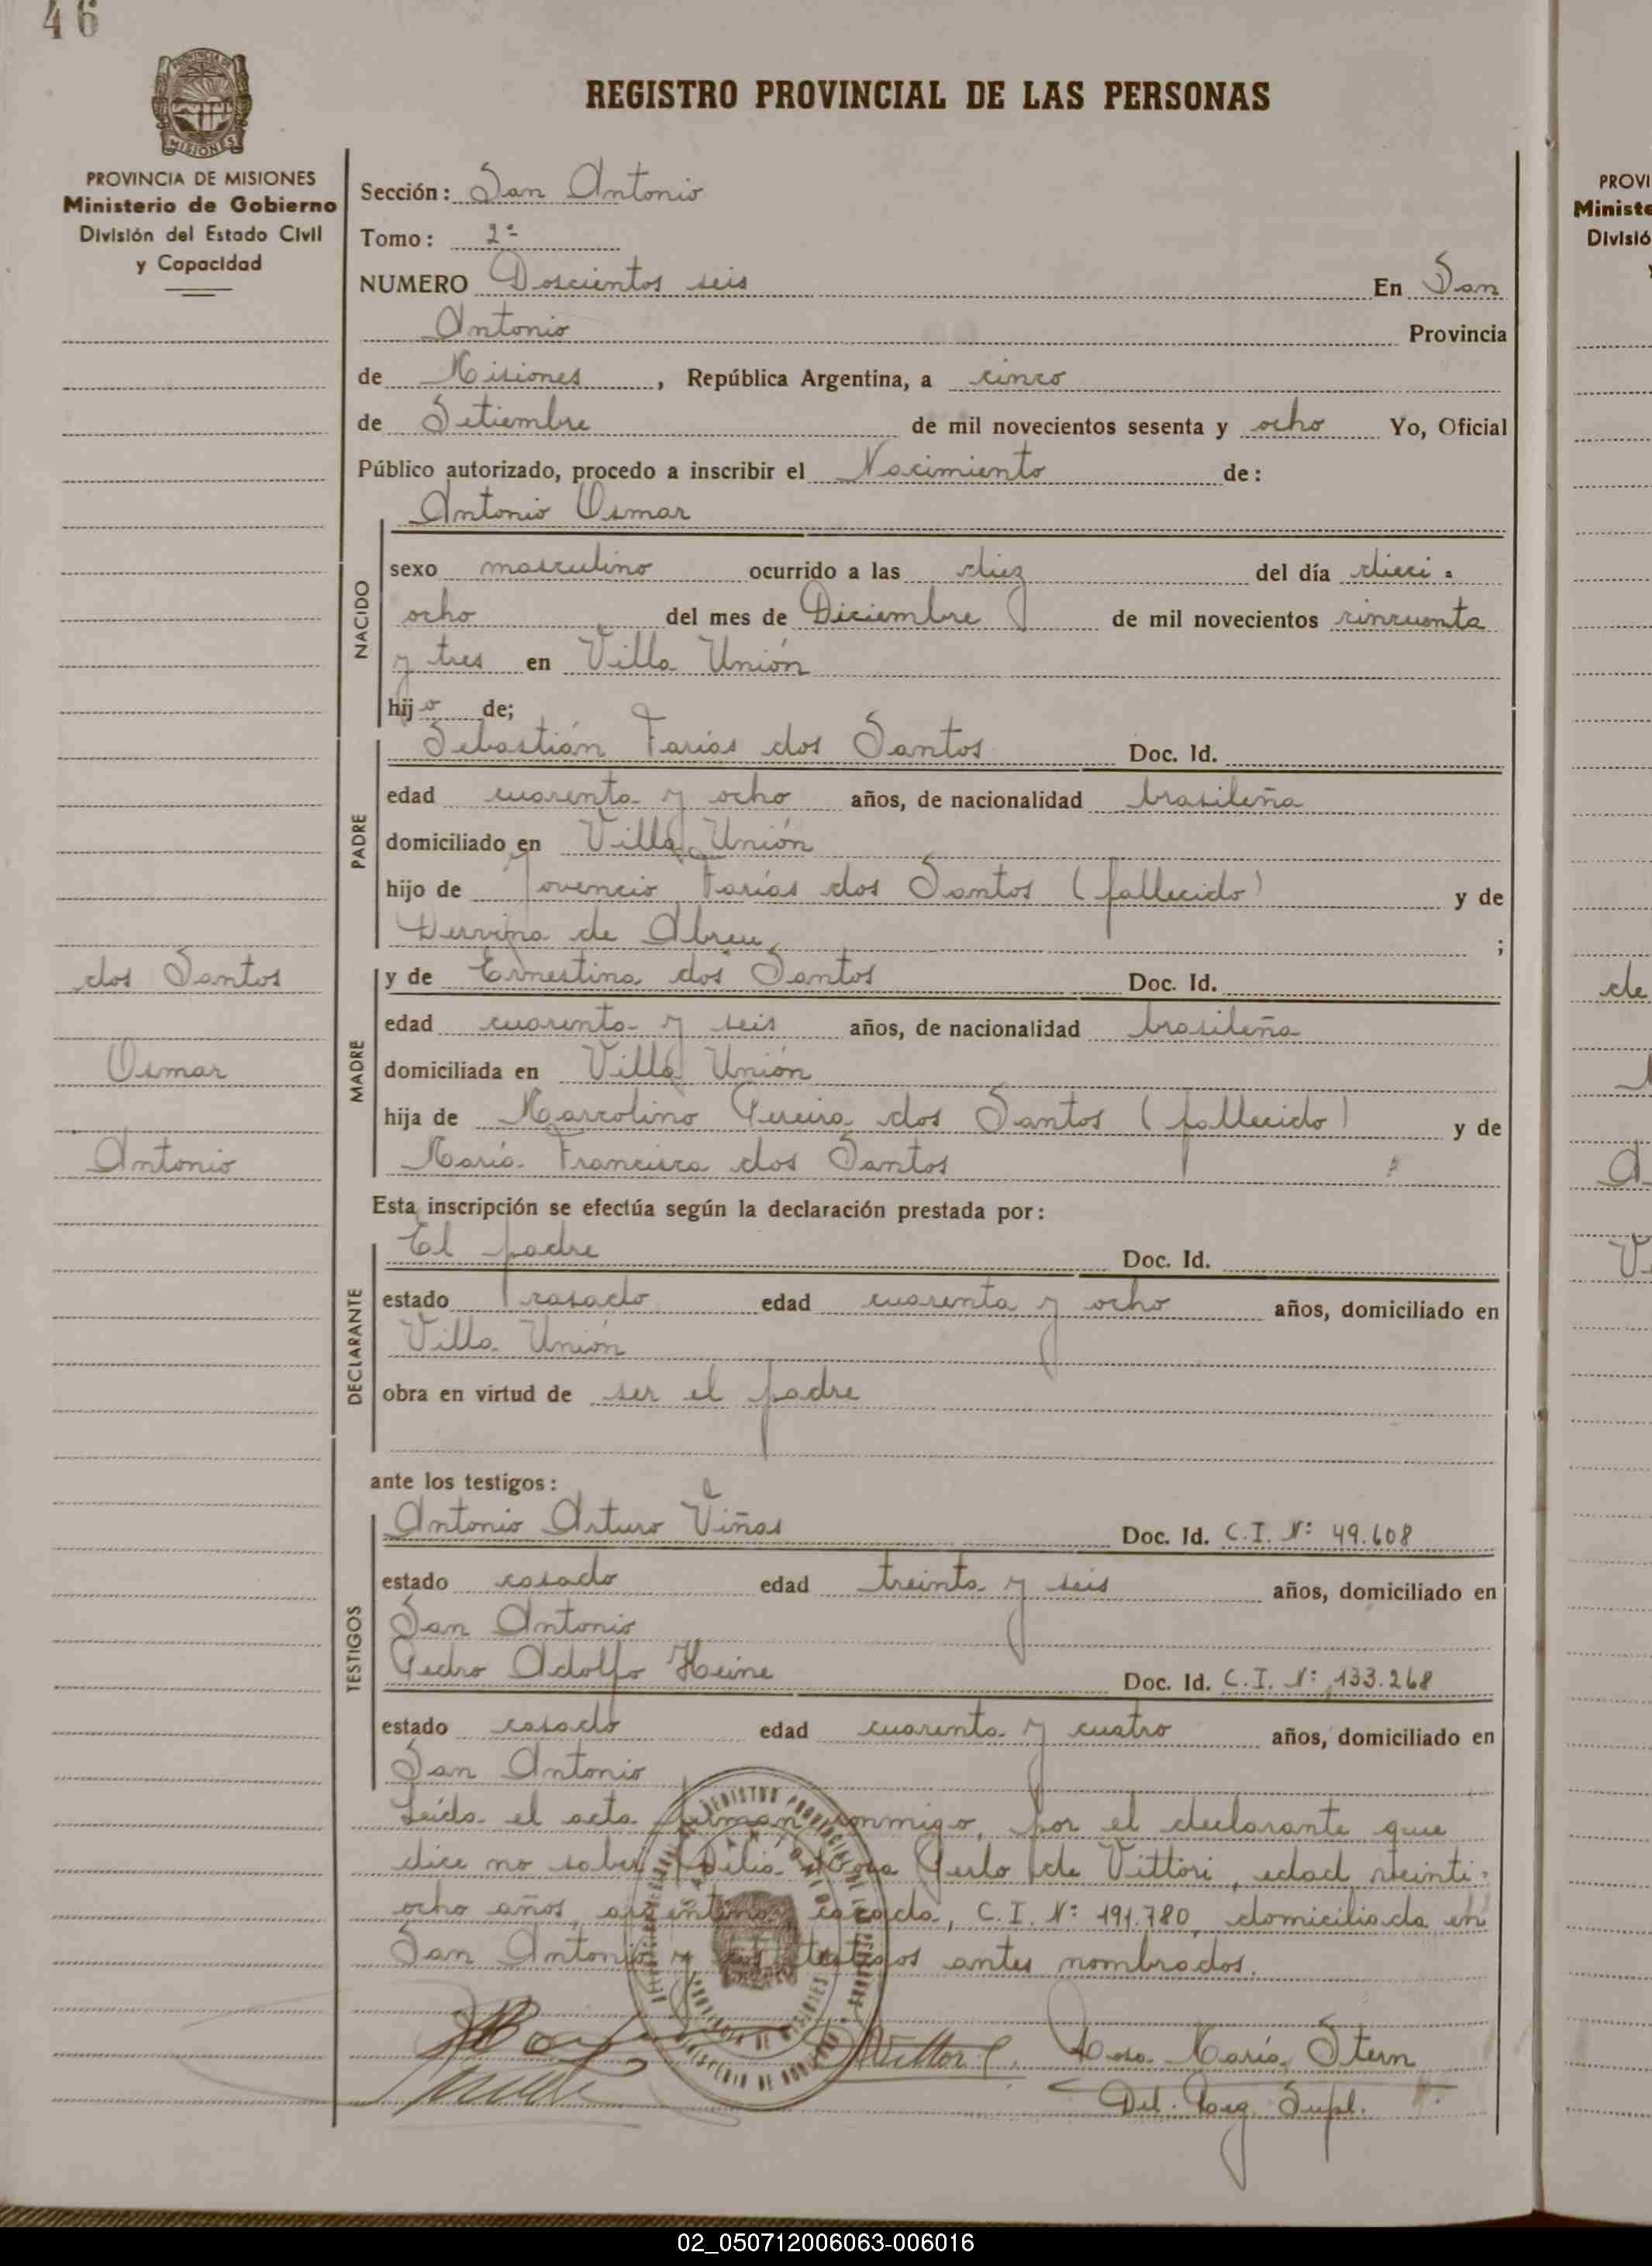 46
REGISTRO PROVINCIAL DE LAS PERSONAS
PROVINCIA DE MISIONES
Ministerio de Gobierno
División del Estado Civil
y Capacidad
Sección: San Antonio
Tomo: 2º
NUMERO Doscientos seis En San
Antonio Provincia
de Misiones, República Argentina, a cinco
de Setiembre de mil novecientos sesenta y ocho Yo, Oficial
Público autorizado, procedo a inscribir el Nacimiento de:
NACIDO
Antonio Osmar
sexo masculino ocurrido a las diez del día dieci-
ocho del mes de Diciembre de mil novecientos cincuenta
y tres en Villa Unión
hijo de;
PADRE
Sebastián Farías dos Santos Doc. Id.
edad cuarenta y ocho años, de nacionalidad brasileña
domiciliado en Villa Unión
hijo de Jovencio Farías dos Santos (fallecido) y de
de Abreu ;
MADRE
y de Ernestina dos Santos Doc. Id.
edad cuarenta y seis años, de nacionalidad brasileña
domiciliada en Villa Unión
hija de Marcolino Pereira dos Santos (fallecido) y de
María Francisca dos Santos
dos Santos
Osmar
Antonio
Esta inscripción se efectúa según la declaración prestada por:
DECLARANTE
El padre Doc. Id.
estado casado edad cuarenta y ocho años, domiciliado en
Villa Unión
obra en virtud de ser el padre
ante los testigos:
TESTIGOS
Antonio Arturo Viñas Doc. Id. C.I. Nº 49.608
estado casado edad treinta y seis años, domiciliado en
San Antonio
Pedro Adolfo Heine Doc. Id. C.I. Nº 133.268
estado casado edad cuarenta y cuatro años, domiciliado en
San Antonio
Leída el acta firman conmigo, por el declarante que
dice no saber, Delia de Vittori, edad veinti-
ocho años, argentina, casada, C.I. Nº 191.780, domiciliada en
San Antonio y los testigos antes nombrados.
Vittori Rosa María Stern
Del. Reg. Supl.
PROVI
Ministe
Divisió
y
de
02_050712006063-006016